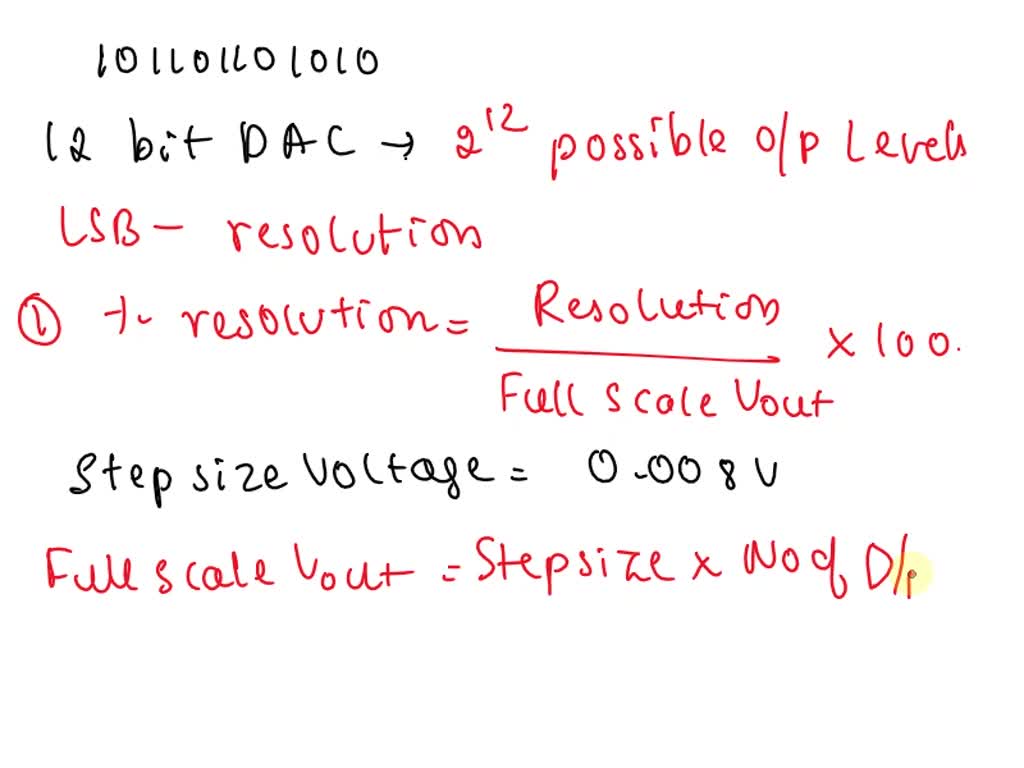 101101101010
12 bit DAC → 2^12 possible o/p Levels
LSB - resolution
① % resolution = Resolution / Full scale Vout × 100.
Step size Voltage = 0.008 V
Full scale Vout = Step size × No of O/p